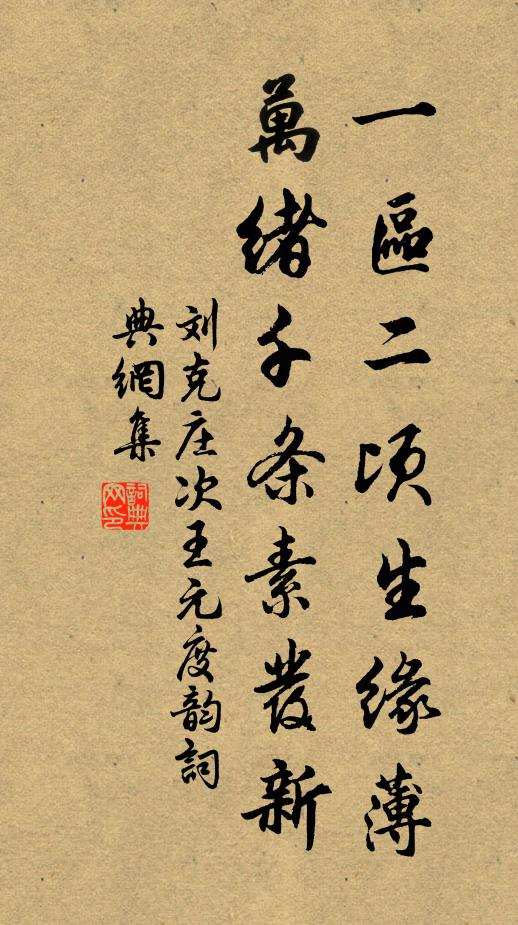 一區二頃生緣薄
萬緒千条素髮新
刘克庄次王元度韵詞
典網集
詞典
网印